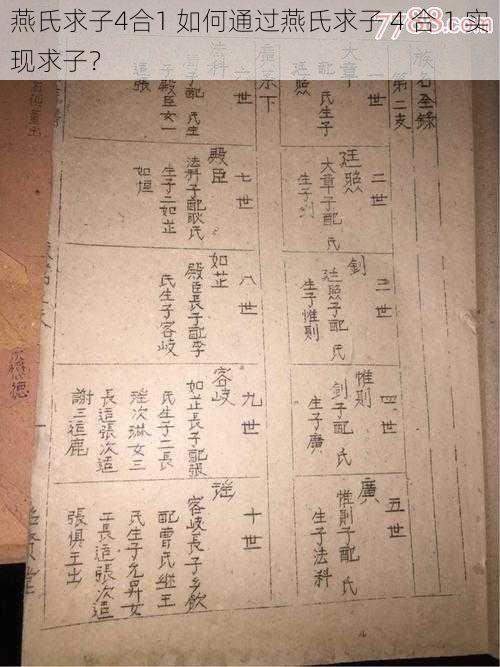 燕氏求子4合1 如何通过燕氏求子 4 合 1 实
现求子？
7788.com
族名全録
第二支
一世
大章
氏生子
廷照
二世
廷照
大章子配 氏
生子釗
三世
釗
廷照子配 氏
生子惟則
四世
惟則
釗子配 氏
生子廣
五世
廣
惟則子配 氏
生子法科
廣系下
六世
法科
氏生
子殿臣女一
適張
七世
殿臣
法科子配耿氏
生子二如芷
如桓
八世
如芷
殿臣長子配李
氏生子容岐
九世
容岐
如芷長子配張
氏生子二長
次琳女三
長適張次適
謝三適鹿
十世
容岐長子乡飲
配曹氏継王
氏生子允昇女
二長適張次適
張俱王出